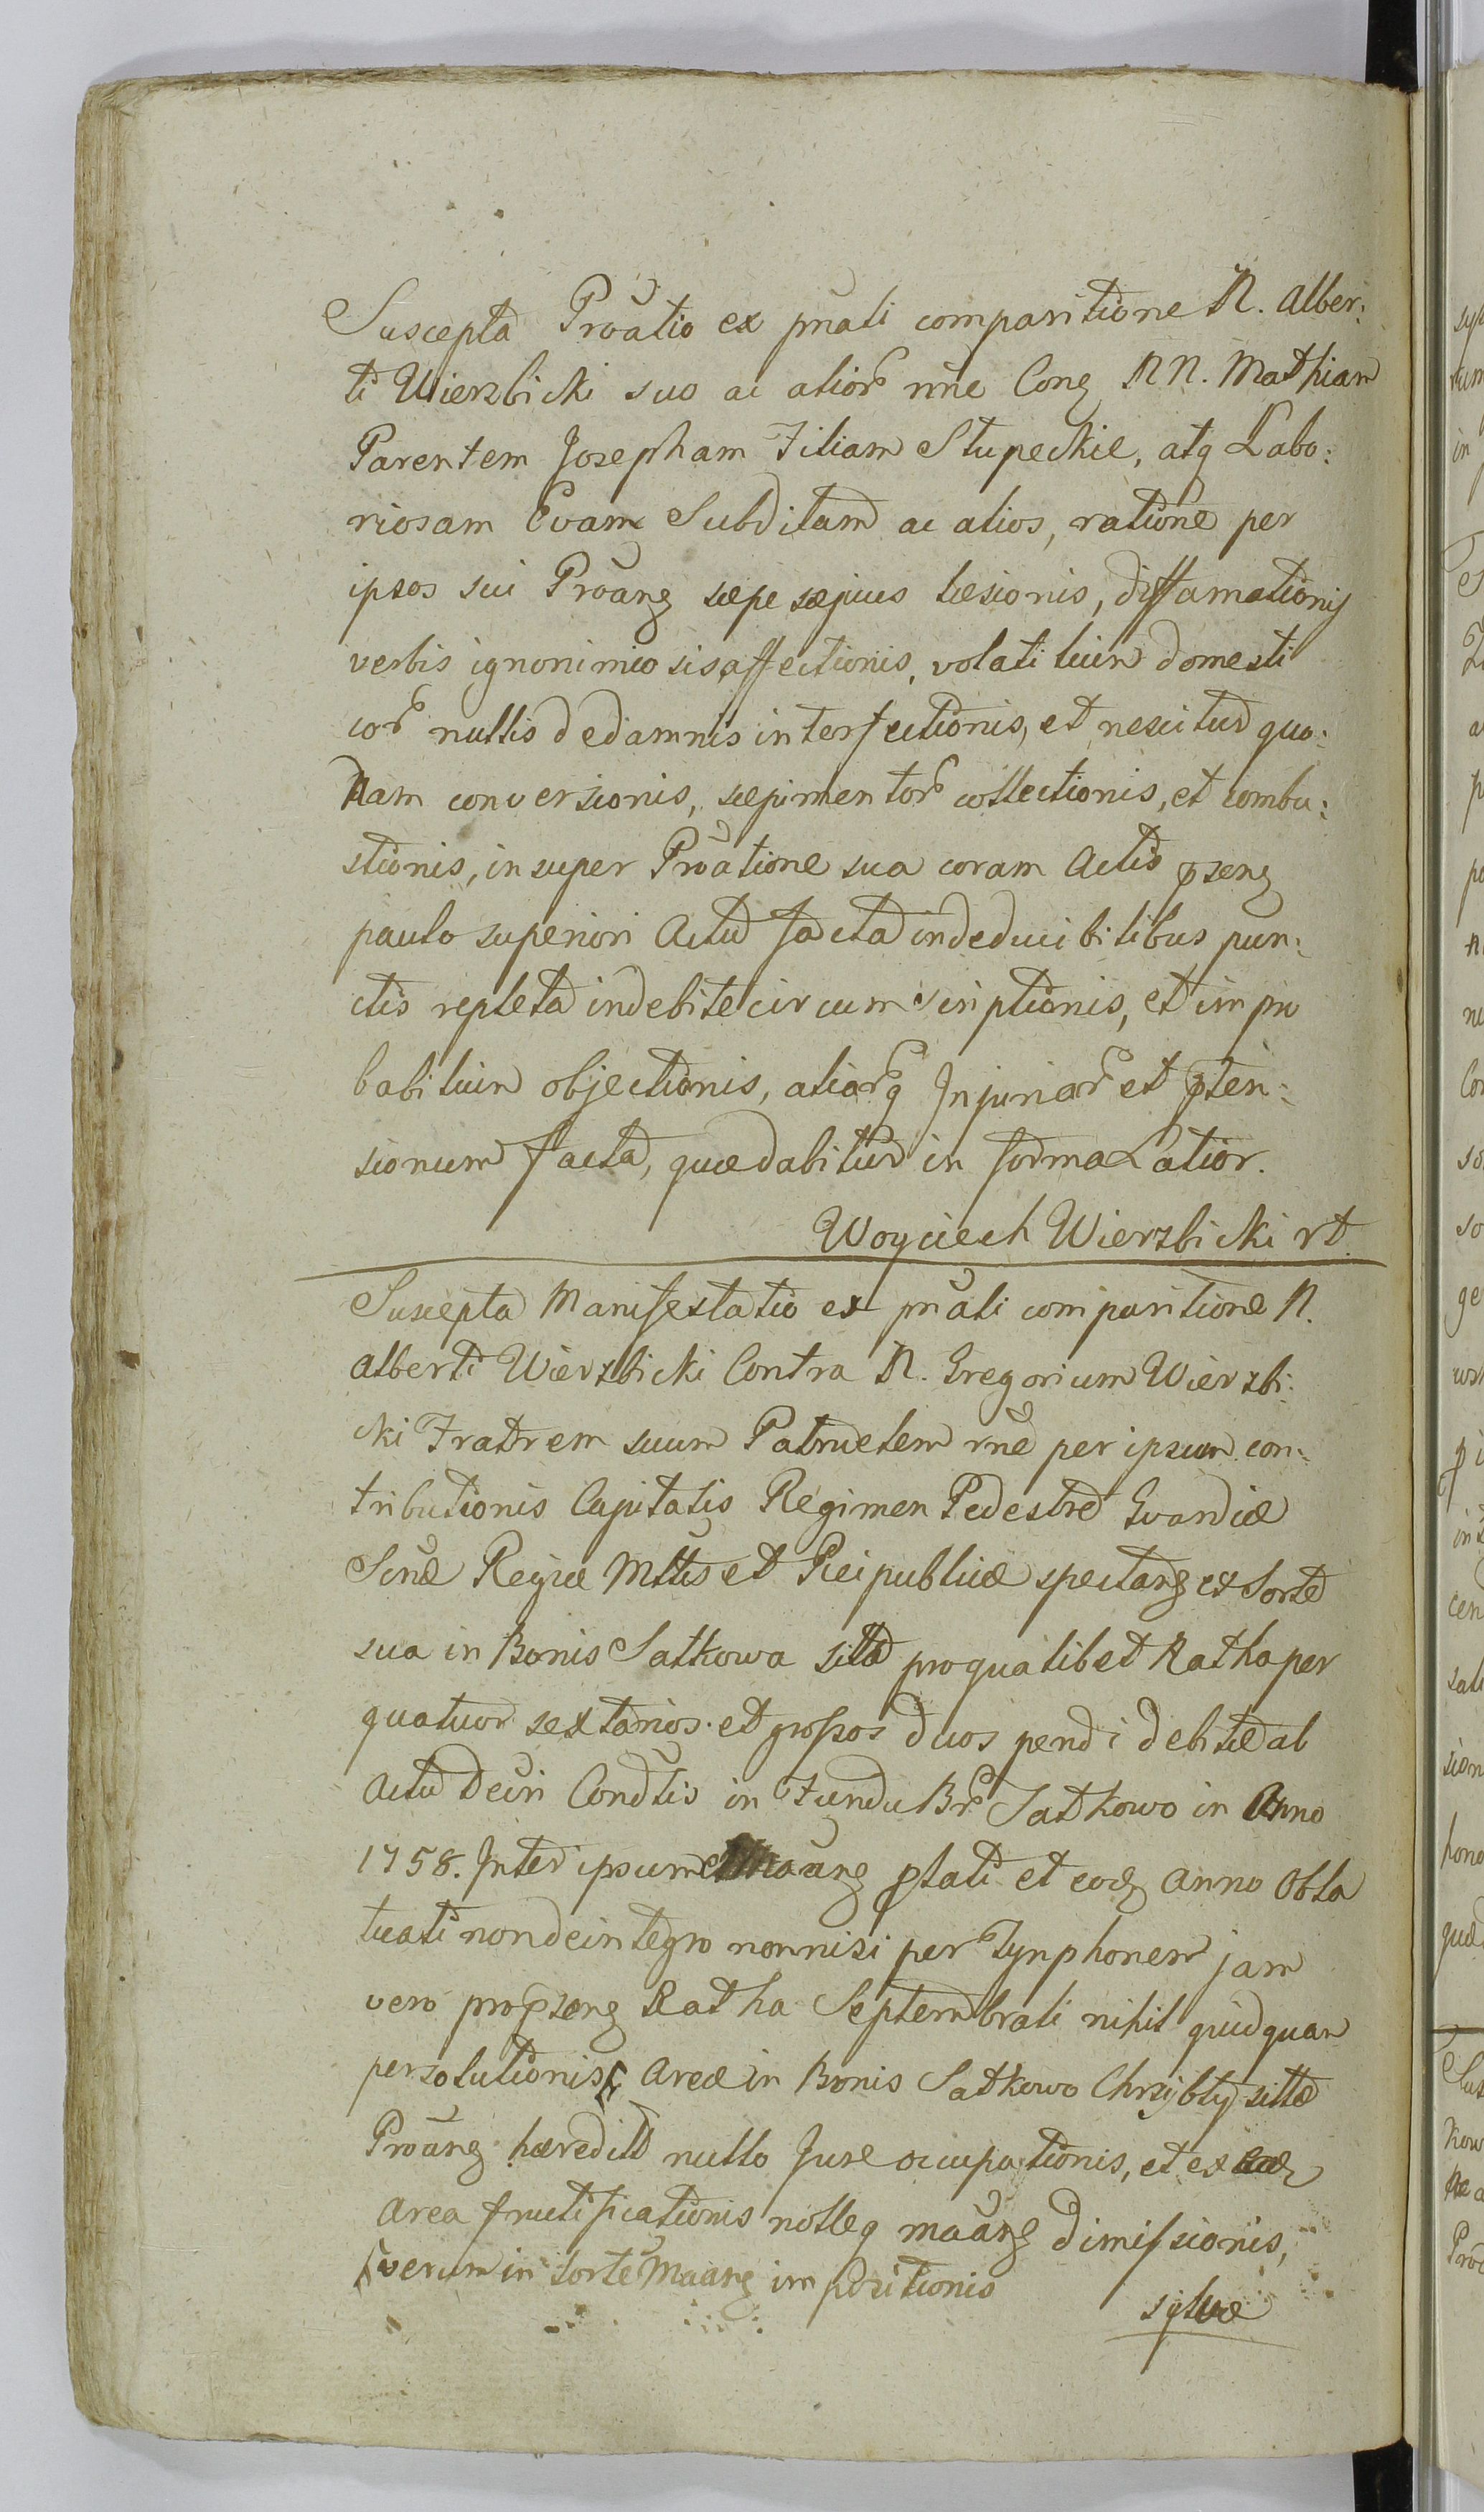 Suscepta Prõatio ex pñati comparitione N. Alber:
ti Wierzbicki suo ac alior nne Conz NN. Mathiam
Parentem Josepham Filiam Słupeckie, atq Labo:
riosam Evam Subditam ac alios, ratione per
ipsos sui Prõanz sæpe sæpius læsionis, diffamationis
verbis ignonimiosis affectionis, volatilium domesti
cor nullis de damnis interfectionis, et nescitur quo:
nam conversionis, sæpimentor collectionis, et combu:
stionis, insuper Prõatione sua coram Actis psenz
paulo superiori Actu facta indeducibilibus pun:
ctis repleta indebite circumscriptionis, et impro
babilium objectionis, aliarq Injuriar et pten:
sionum facta, quæ dabitur in forma Latior.
Woyciech Wierzbicki rt.
Suscepta Manifestatio ex pñati comparitione N.
Alberti Wierzbicki Contra N. Gregorium Wierzbi:
cki Fratrem suum Patruelem rñe per ipsum con:
tributionis Capitalis Regimen Pedestre Gvardiæ
Scñæ Regiæ Mttis et Reipublicæ spectanz ex Sorte
sua in Bonis Satkowa sita pro qualibet Ratha per
quatuor sextarios et grossos duos pendi debitæ ab
Actu Decñ Condtis in Fundu Br Satkowo in Anno
1758. Inter ipsum et anz ptati et eodz Anno Obla
tuati non de integro nonnisi per Tynphonem jam
vero pro psenz Ratha Septembrali nihil quidquam
persolutionis, Areæ in Bonis Satkowo Chrzibty sittæ
Prõanz hæreditt nullo Jure occupationis, et ex eadz
Area fructificationis nolleq mãanz dimissionis,
verum in sorte Mãanz impositionis
sylvæ